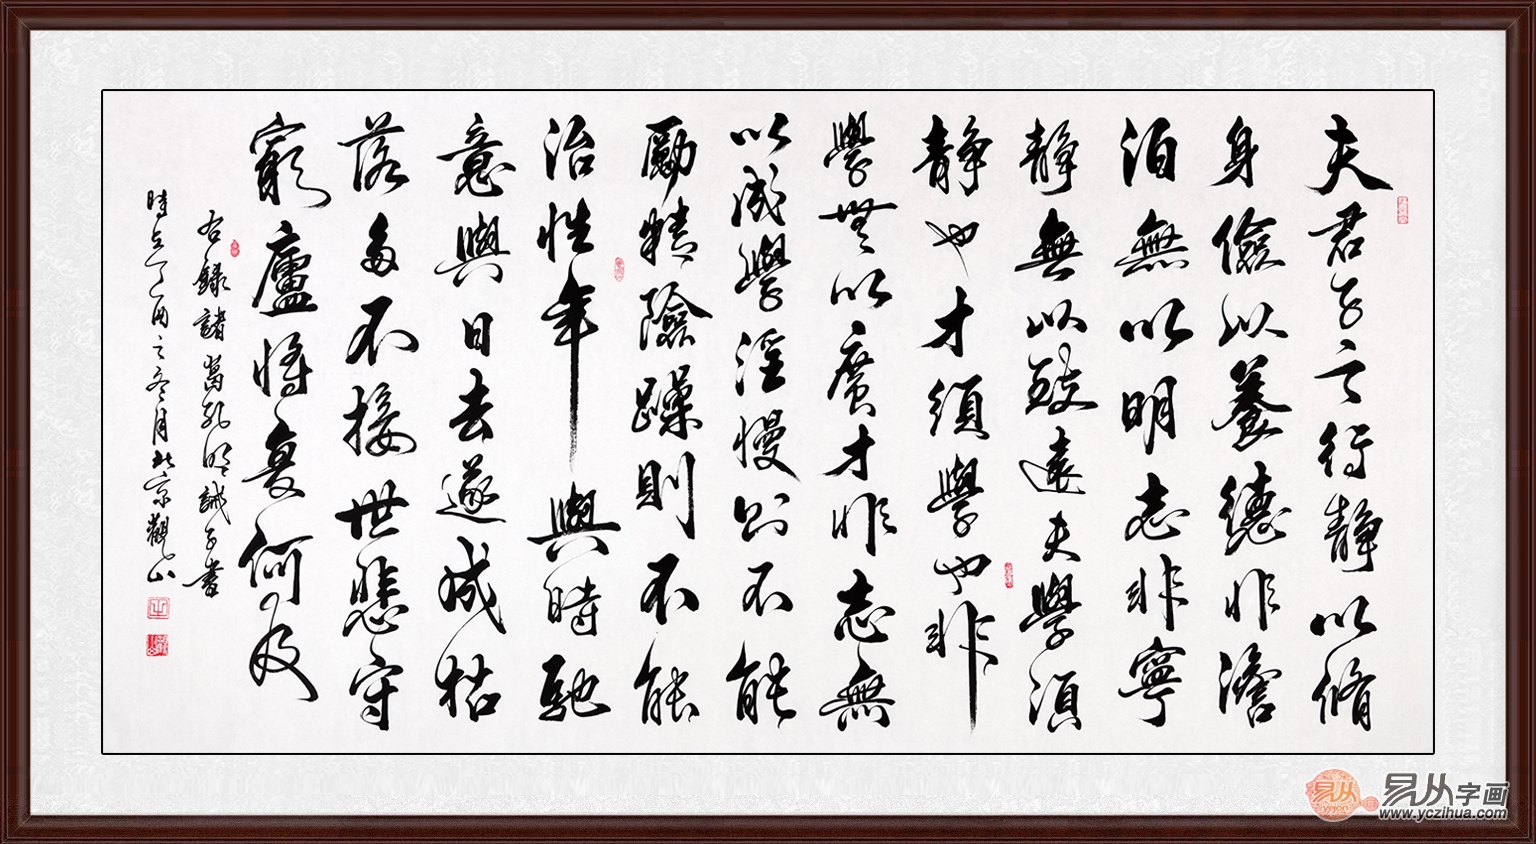 夫君子之行静以脩
身儉以養德非澹
泊無以明志非寧
静無以致遠夫學須
静也才須學也非
學無以廣才非志無
以成學淫慢則不能
勵精險躁則不能
治性年與時馳
意與日去遂成枯
落多不接世悲守
窮廬將復何及
右錄諸葛孔明誡子書
時在丁酉之冬月北京觀山
易从
易从字画
www.yczihua.com